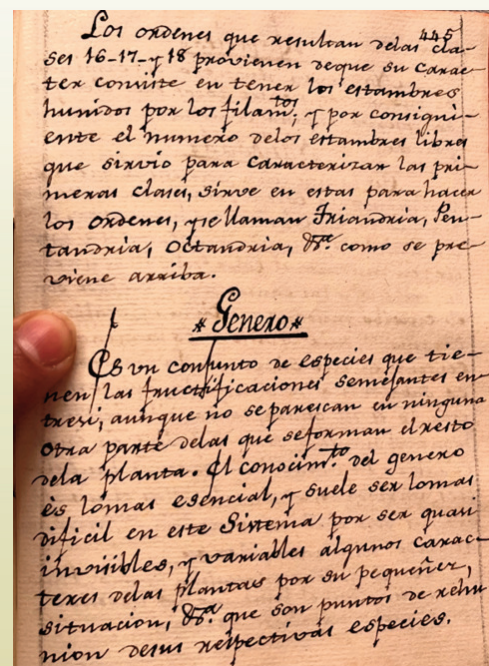 445
Los ordenes que resultan delas cla-
ses 16-17-y 18 provienen deque su carac-
ter consiste en tener los estambres
hunidos por los filam.tos; y por consigui-
ente el numero delos estambres libres
que sirvio para caracterizar las pri-
meras clases, sirve en estas para hacer
los ordenes, yse llaman Triandria, Pen-
tandria, Octandria, &.a como se pre-
viene arriba.
* Genero *
Es vn conjunto de especies que tie-
nen las fructificaciones semejantes en-
tresi, aunque no separescan en ninguna
otra parte delas que seforman el resto
dela planta. El conocim.to del genero
ès lomas esencial, y suele ser lomas
dificil en este Sistema por ser quasi
invisibles, y variables algunos carac-
teres delas plantas por su pequeñez,
situacion, &.a que son puntos de rehu
nion desus respectivas especies.